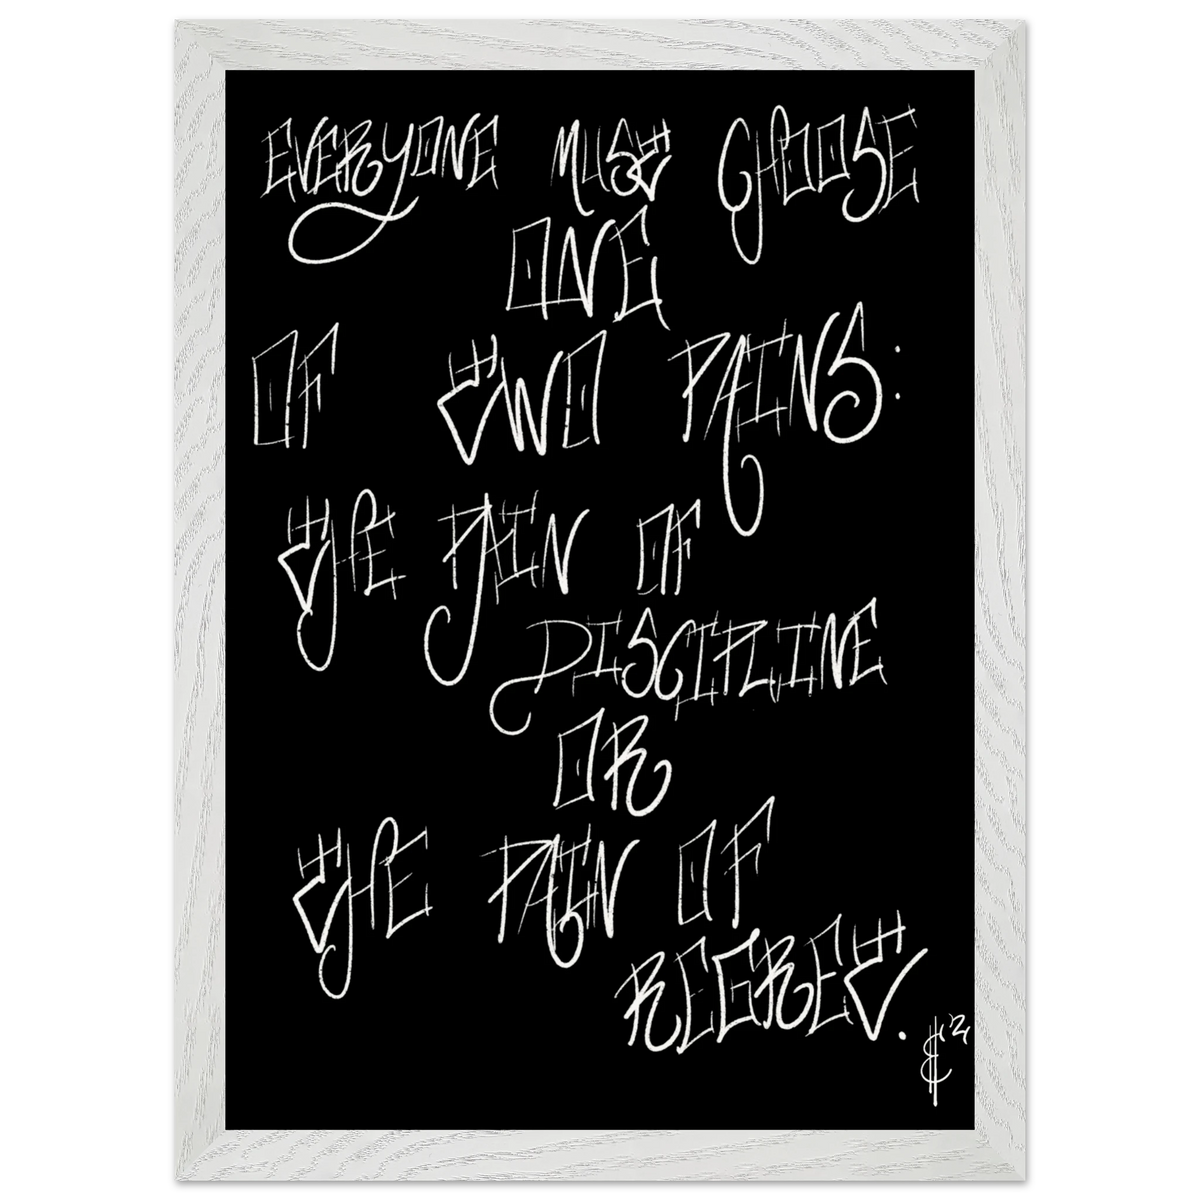 EVERYONE MUST CHOOSE
ONE
OF TWO PAINS:
THE PAIN OF
DISCIPLINE
OR
THE PAIN OF
REGRET.